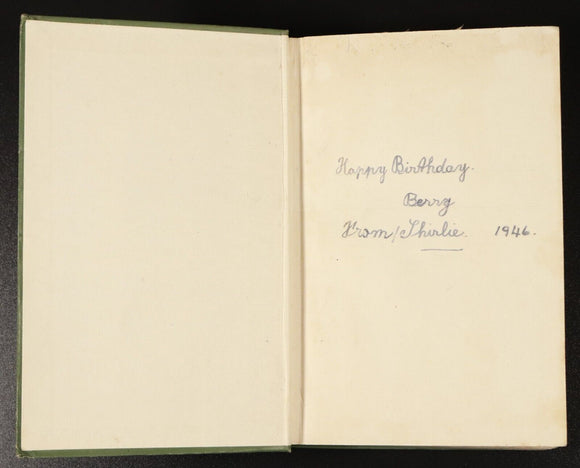 Happy Birthday.
Berry
From/Shirlie. 1946.